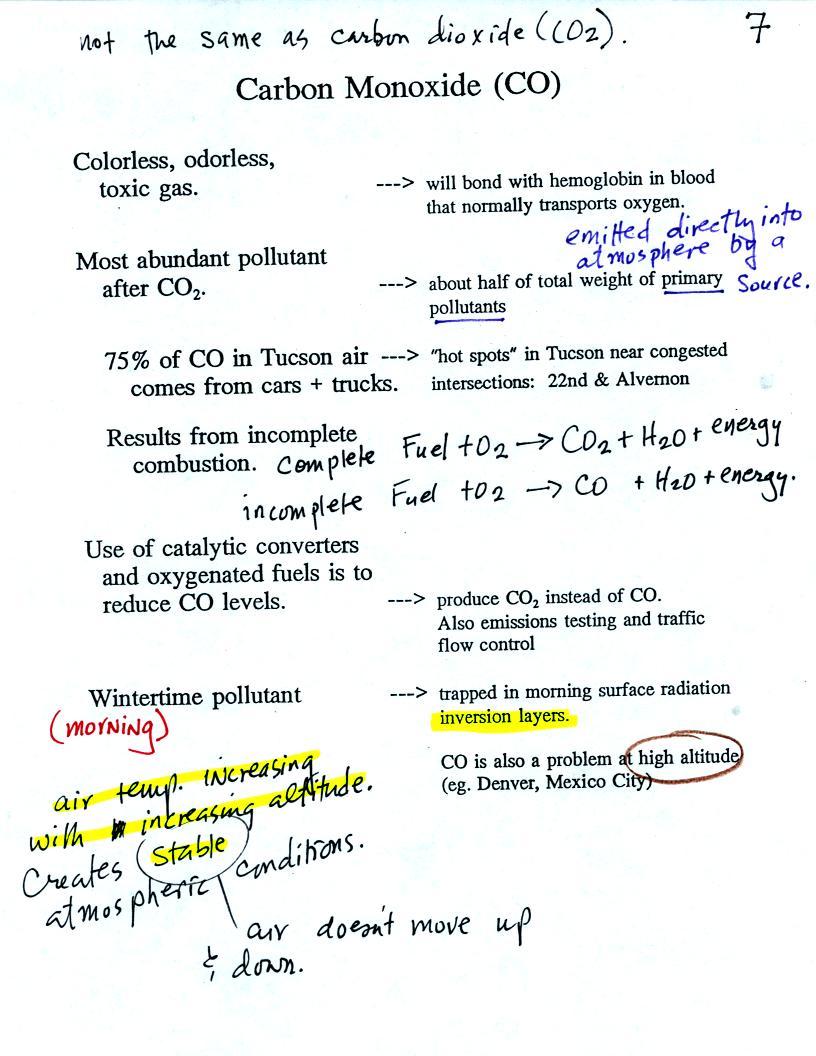 not the same as carbon dioxide (CO2).
7
Carbon Monoxide (CO)
Colorless, odorless,
toxic gas.
---> will bond with hemoglobin in blood
that normally transports oxygen.
emitted directly into
atmosphere by a
source.
Most abundant pollutant
after CO₂.
---> about half of total weight of primary
pollutants
75% of CO in Tucson air
comes from cars + trucks.
---> "hot spots" in Tucson near congested
intersections: 22nd & Alvernon
Results from incomplete
combustion.
complete Fuel + O2 → CO2 + H2O + energy
incomplete Fuel + O2 → CO + H2O + energy.
Use of catalytic converters
and oxygenated fuels is to
reduce CO levels.
---> produce CO₂ instead of CO.
Also emissions testing and traffic
flow control
Wintertime pollutant
(morning)
---> trapped in morning surface radiation
inversion layers.
CO is also a problem at high altitude
(eg. Denver, Mexico City)
air temp. increasing
with increasing altitude.
Creates stable
atmospheric conditions.
air doesn't move up
& down.